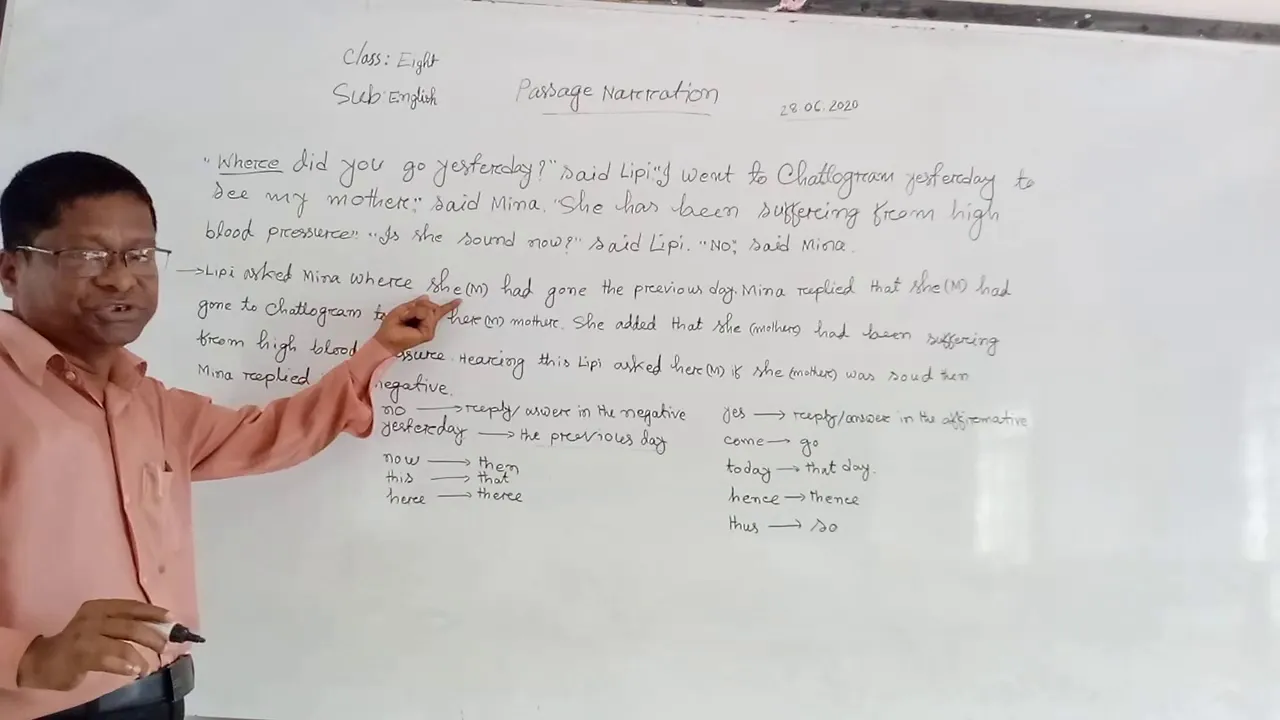 Class: Eight
Sub: English
Passage Narration
28.06.2020
"Where did you go yesterday?" said Lipi. "I went to Chattogram yesterday to
see my mother." said Mina. "She has been suffering from high
blood pressure." "Is she sound now?" said Lipi. "No", said Mina.
→ Lipi asked Mina where she (M) had gone the previous day. Mina replied that she (M) had
gone to Chattogram her (M) mother. She added that she (mother) had been suffering
from high blood Hearing this Lipi asked her (M) if she (mother) was soud then
Mina replied negative.
no → reply/ aswer in the negative
yesterday → the previous day
now → then
this → that
here → there
yes → reply/answer in the affirmative
come → go
today → that day.
hence → thence
thus → so